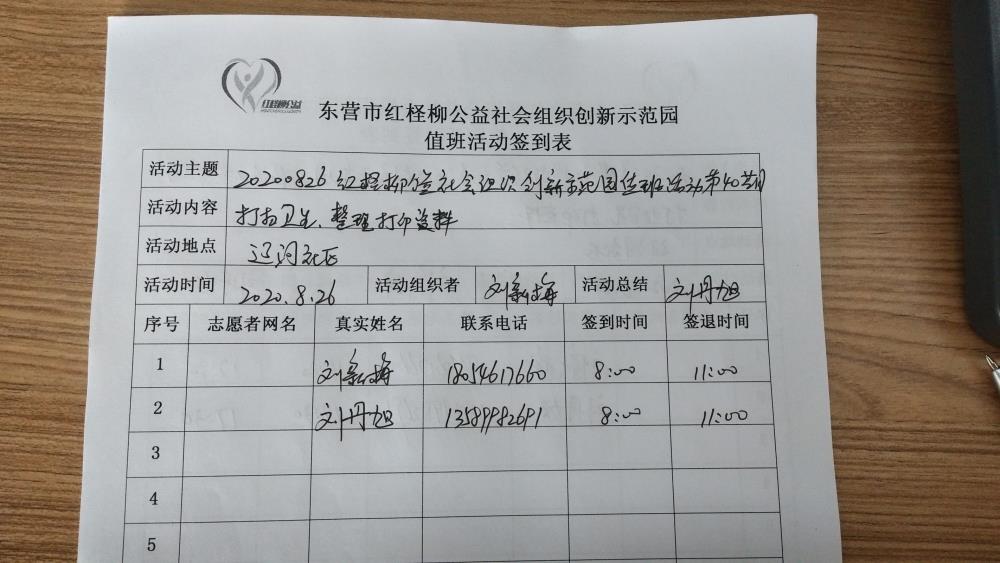 红柽柳公益
东营市红柽柳公益社会组织创新示范园
值班活动签到表
活动主题 20200826红柽柳公益社会组织创新示范园值班活动第40期
活动内容 打扫卫生、整理打印资料
活动地点 辽河社区
活动时间 2020.8.26 活动组织者 刘新梅 活动总结 刘丹旭
序号 志愿者网名 真实姓名 联系电话 签到时间 签退时间
1 刘新梅 18054617660 8:00 11:00
2 刘丹旭 13589982691 8:00 11:00
3
4
5